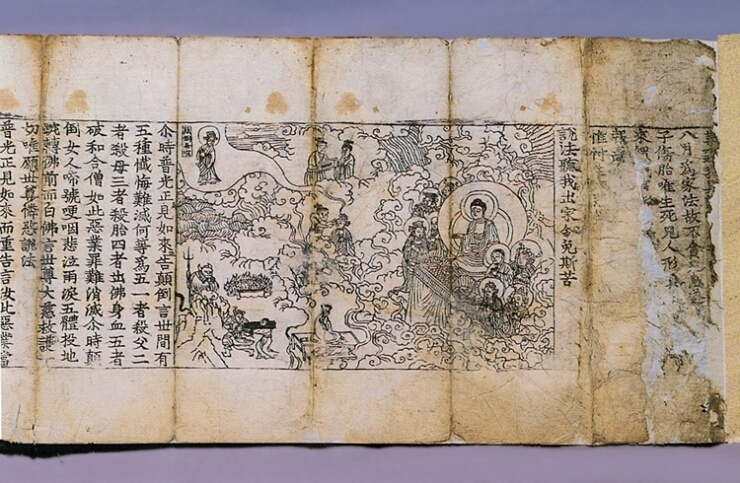 八月爲家法故不食
子傷胎唯生死兒人形具
說法聽我出家令免斯苦
尒時普光正見如來告顛倒言世間有
五種懺悔難滅何等爲五一者殺父二
者殺母三者殺胎四者出佛身血五者
破和合僧如此惡業罪難消滅尒時顛
倒女人啼號哽咽悲泣雨淚五體投地
蜿轉佛前而白佛言世尊大慈救護一
切唯願世尊憐愍說法
普光正見如來而重告言汝此惡業當